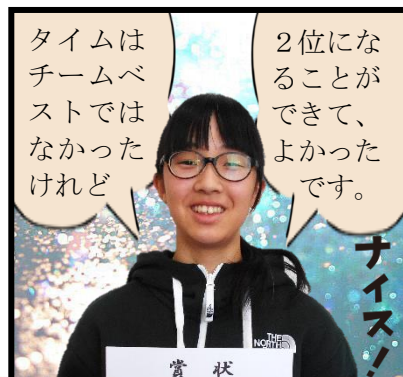 タイムは
チームベ
ストでは
なかった
けれど
２位にな
ることが
できて、
よかった
です。
ナイス！
THE
NORTH
賞状